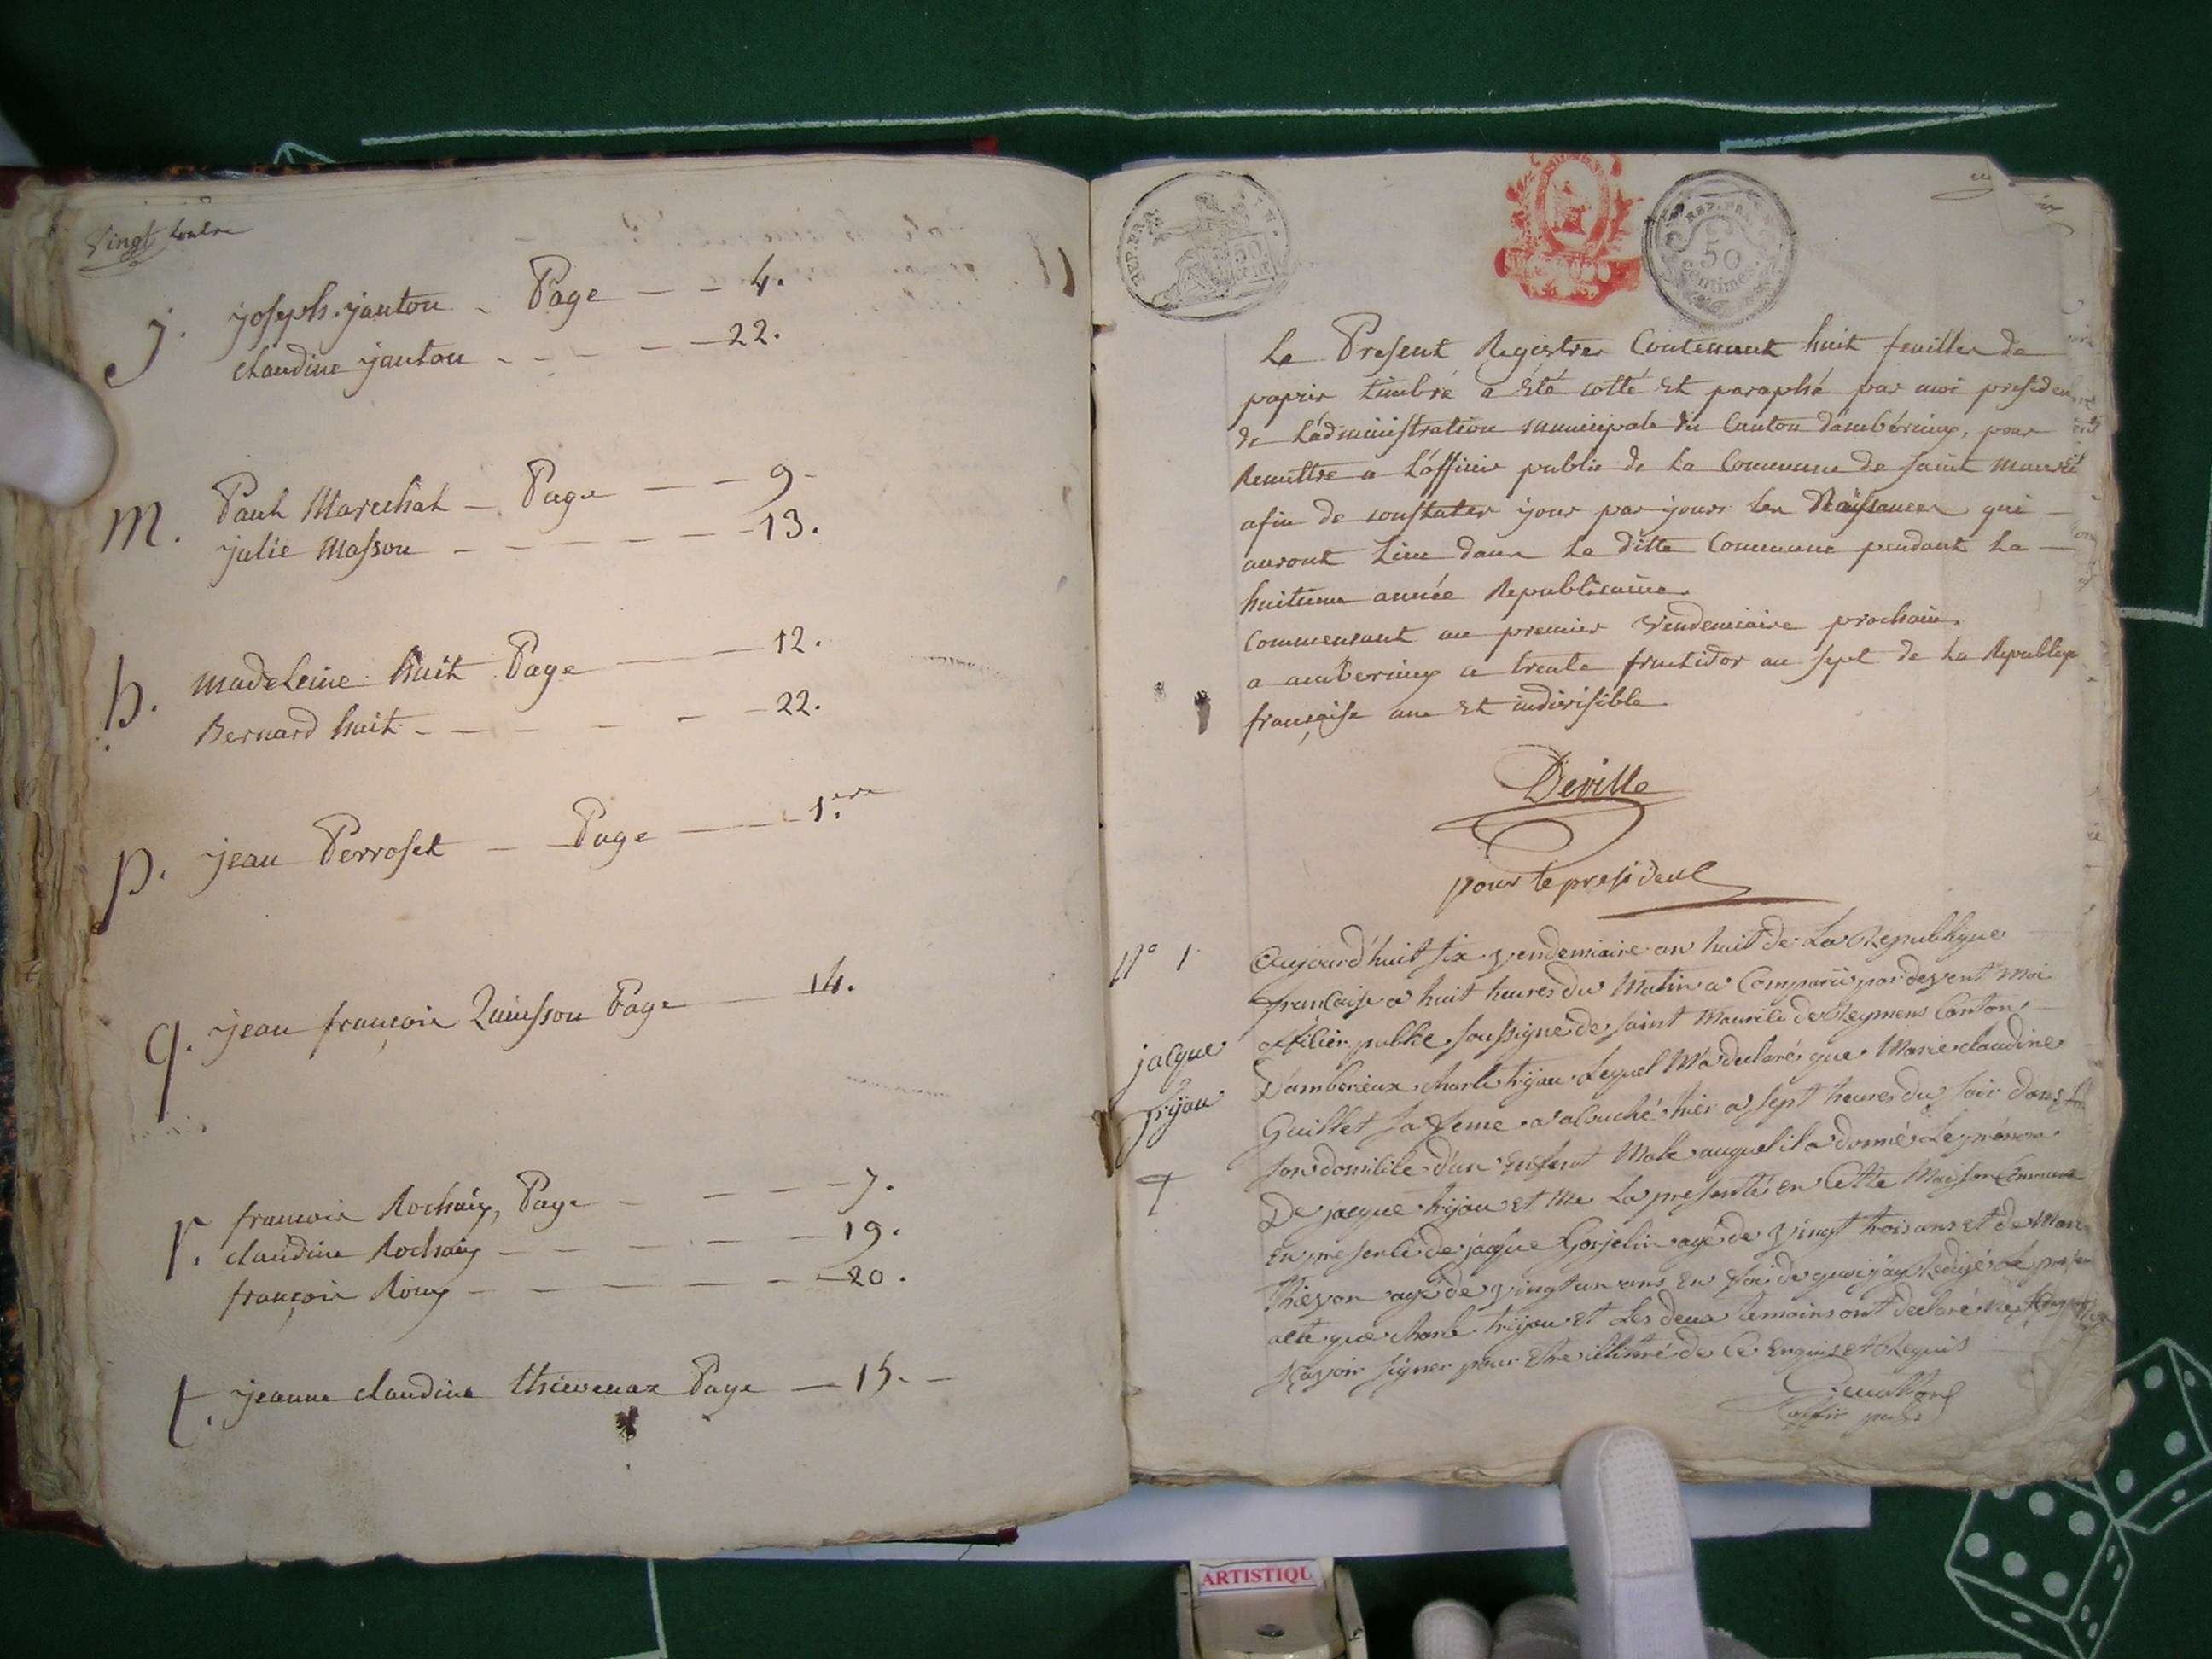 Vingt
j. joseph. janton - Page - - 4.
claudine janton - - - - 22.
M. Paul Marechal - Page - - 9-
julie Masson - - - - - - 13.
h. Madeleine huit Page - - 12.
Bernard huit - - - - - 22.
p. jean Perroset - Page - - 1.ere
q. jean françois Quinsson Page - 14.
r. francois Rochaix, Page - - - - 7.
claudine Rochaix - - - - - 19.
françois Roux - - - - - - 20.
t. jeanne claudine thievenaz Page - 15. -
REP. FRA.
50
CENT
REP. FRA.
50
centimes.
Le Present Registre Contenant huit feuilles de
papier timbré a été cotté et paraphé par moi president
de L'administration municipale du Canton d'ambérieux, pour
Remettre a L'officier public de La Commune de saint maurice
afin de constater jour par jours les Naissances qui -
auront Lieu dans La ditte Commune pendant La -
huitieme année Republicaine
Commensant au premier Vendemiaire prochain.
a amberieux ce trente fructidor an sept de La Republiq
française une et indivisible
Deville
pour le president
N° 1
Aujourd'huit six vendemiaire an huit de La Republique
francaise a huit heures du Matin a Comparu par devent moi
jacque
officier public soussigné de saint Maurice de Reymens Canton
trijau
D'amberieux charle trijau Lequel M'a declaré que Marie claudine
Guillet sa feme a acouché hier a sept heures du soir dans
son domicile d'un enfent Male auquel il a donné Le prénom
De jacque trijau et me La presenté en Cette Maison Commune
En presence de jacque Gosjelin agé de vingt trois ans et de Marc
Thevon agé de vingt un ans En foi de quoi j'ay Redigé Le present
acte que charle trijau et Les deux temoins ont declaré ne
savoir signer pour etre illitéré de Ce Enquis et Requis
offi pub
ARTISTIQU